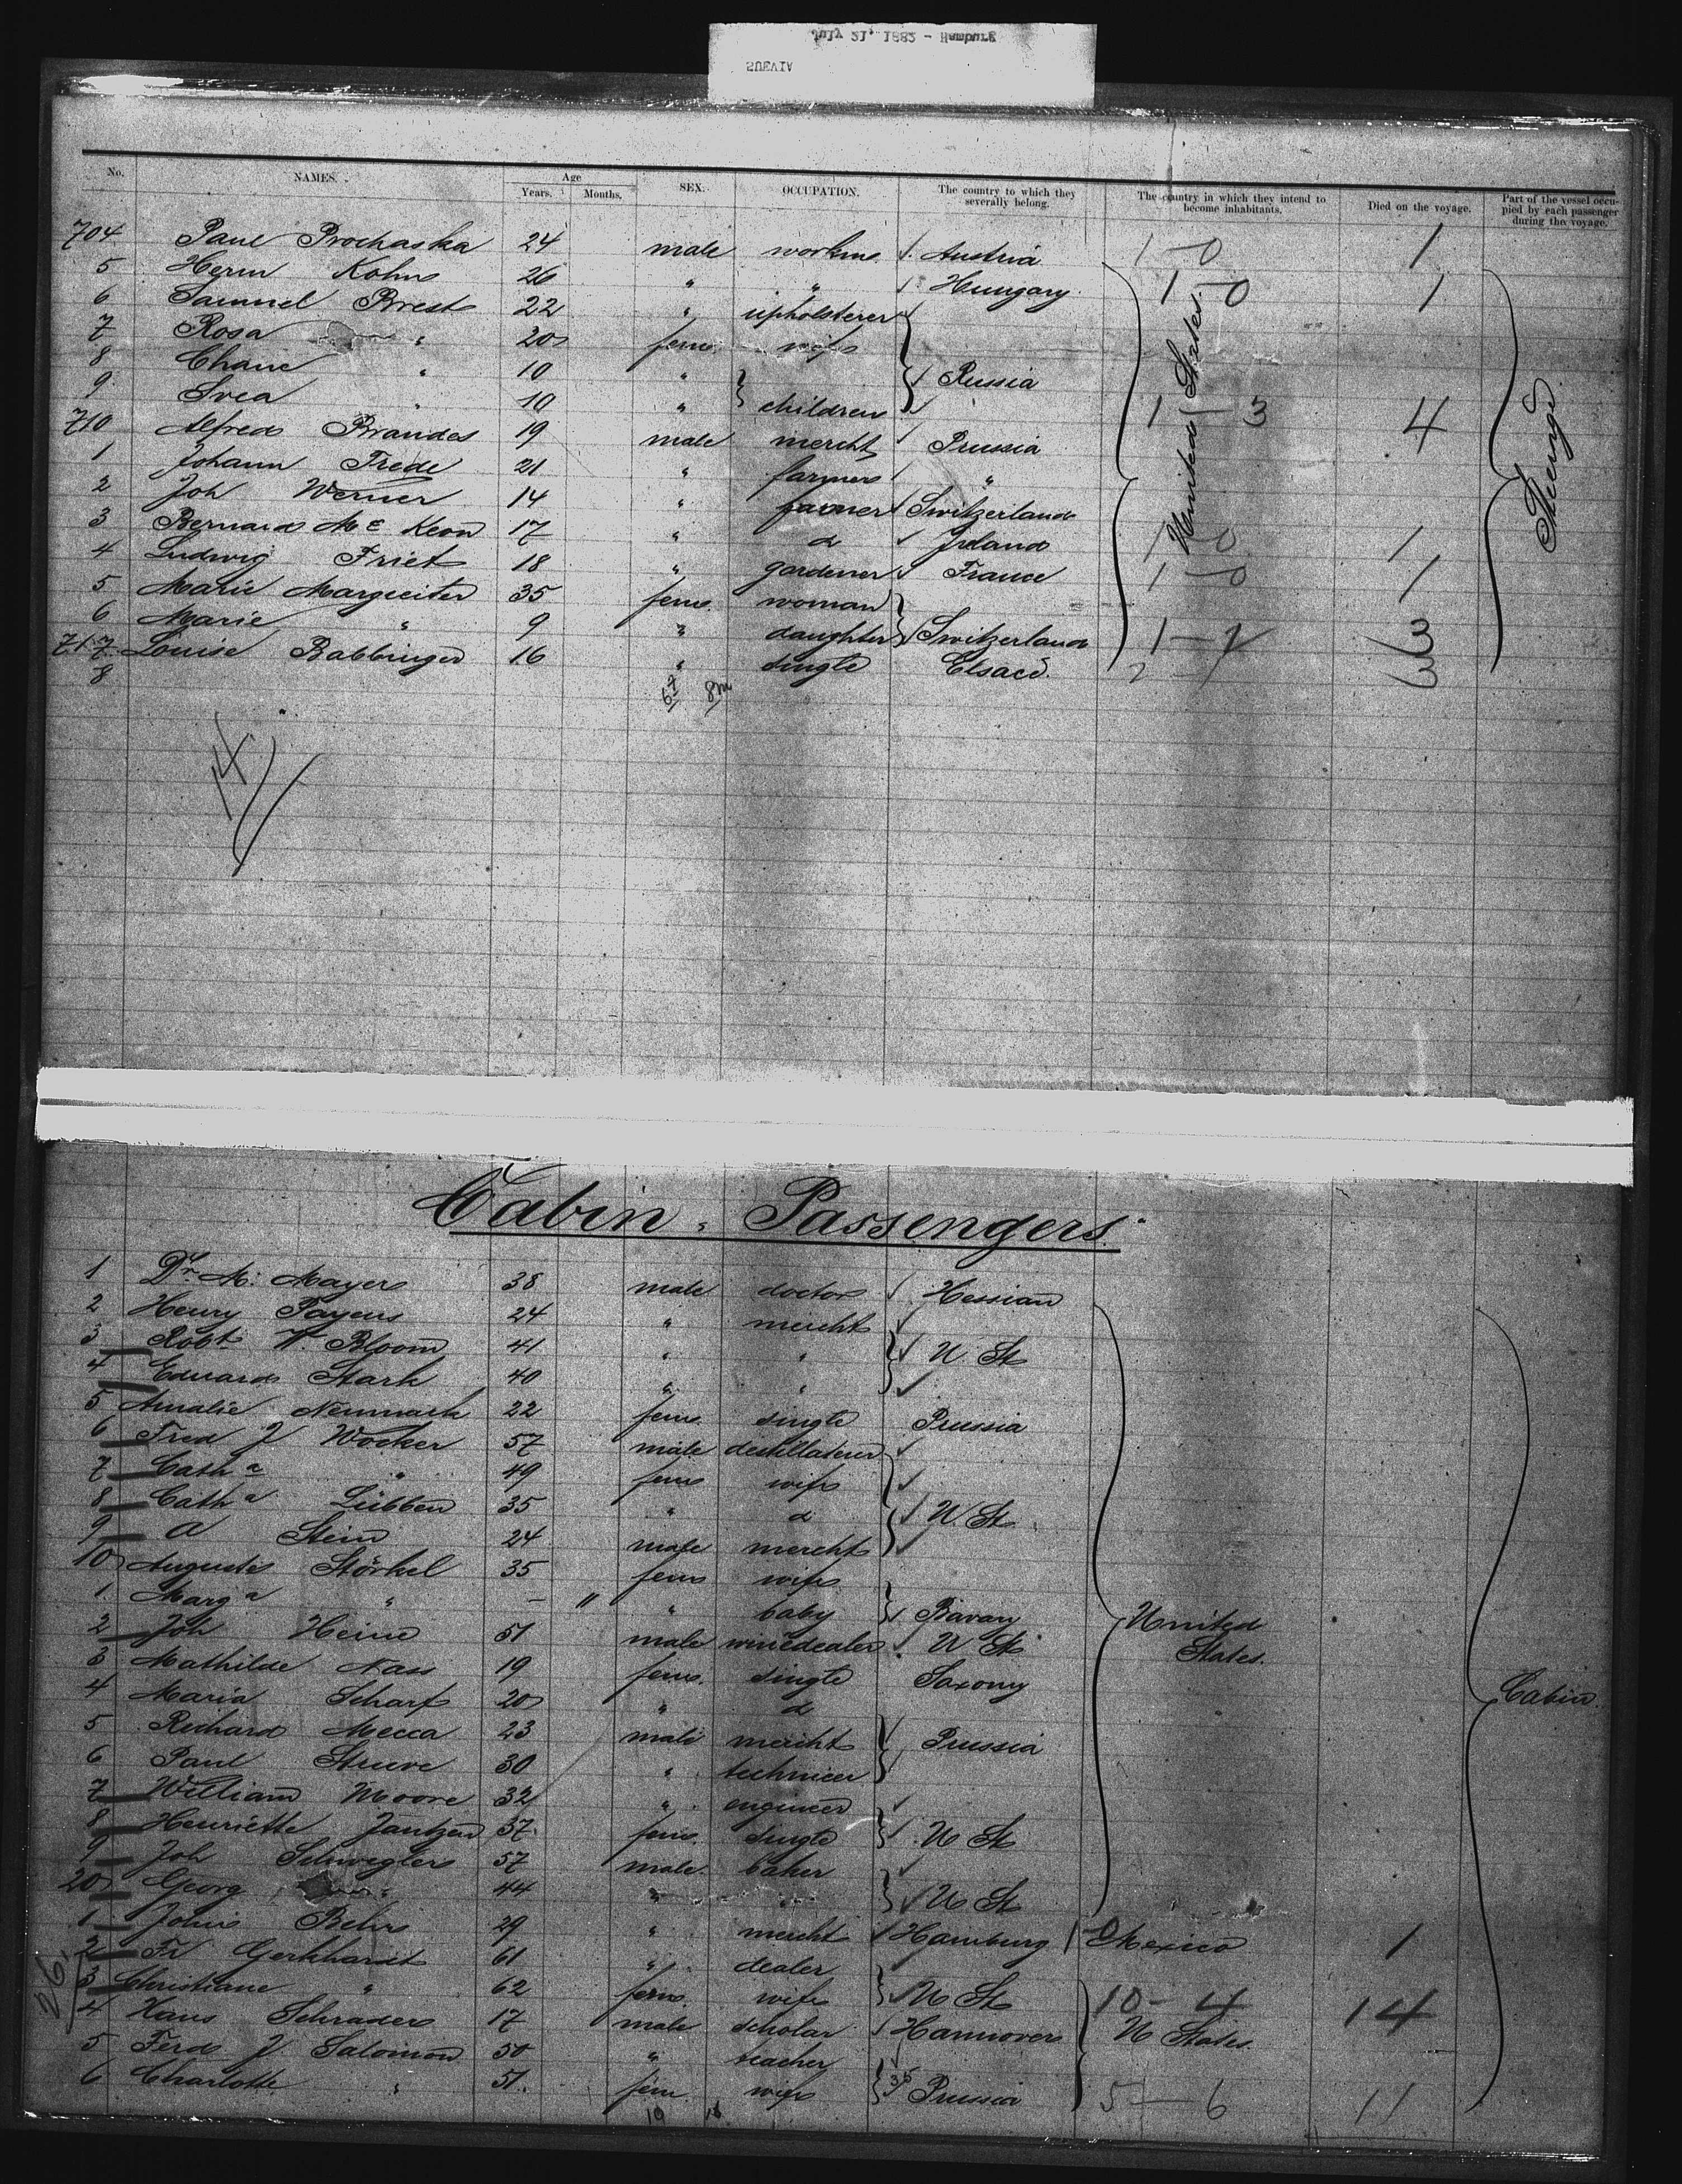 July 21, 1882 - Hamburg
SUEVIA
No. NAMES. Age Years. Months. SEX. OCCUPATION. The country to which they severally belong. The country in which they intend to become inhabitants. Died on the voyage. Part of the vessel occupied by each passenger during the voyage.
704 Paul Prochaska 24 male workm Austria 1-0 1
5 Herm Kohn 26 " " Hungary 1-0 1
6 Samuel Brest 22 " upholsterer
7 Rosa " 20 fem. wife
8 Chane " 10 " Russia
9 Svea " 10 " children 1-3 4
710 Alfred Brandes 19 male mercht Prussia
1 Johann Trede 21 " farmer "
2 Joh Werner 14 " farmer Switzerland
3 Bernard Mc Keon 17 " d Ireland 1 0 1
4 Ludwig Friet 18 " gardener France 1-0 1
5 Marie Margreiter 35 fem. woman
6 Marie " 9 " daughter Switzerland 1- 3
717 Louise Babbinger 16 " single Elsace 3
8
United States.
14
Cabin-Passengers.
1 Dr. M. Mayer 38 male doctor Hessian
2 Henry Payens 24 " mercht
3 Robt W. Bloom 41 " " U. St
4 Eduard Stark 40 " "
5 Amalie Neumark 22 fem. single Prussia
6 Fred J Wocker 57 male destillateur
7 Catha " 49 fem wife
8 Catha Lübben 35 " d U. St
9 A Stein 24 male mercht
10 Auguste Störkel 35 fem wife
1 Marga " - 11 " baby Bavary United
2 Joh Heine 51 male winedealer U St States.
3 Mathilde Nass 19 fem. single Saxony
4 Maria Scharf 20 " d Cabin.
5 Richard Mecca 23 male mercht Prussia
6 Paul Struve 30 " technicer
7 William Moore 32 " engineer
8 Henriette Jantzen 37 fem. single U St
9 Joh Schwegler 57 male baker
20 Georg " 44 " U St
1 Johs Behr 29 " mercht Hamburg Mexico 1
2 Fr Gerkhardt 61 " dealer
3 Christiane " 62 fem. wife U St 10-4 14
4 Hans Schrader 17 male scholar Hannover U States.
5 Ferd. J. Salomon 50 " teacher
6 Charlotte " 51 fem wife Prussia 5-6 11
26